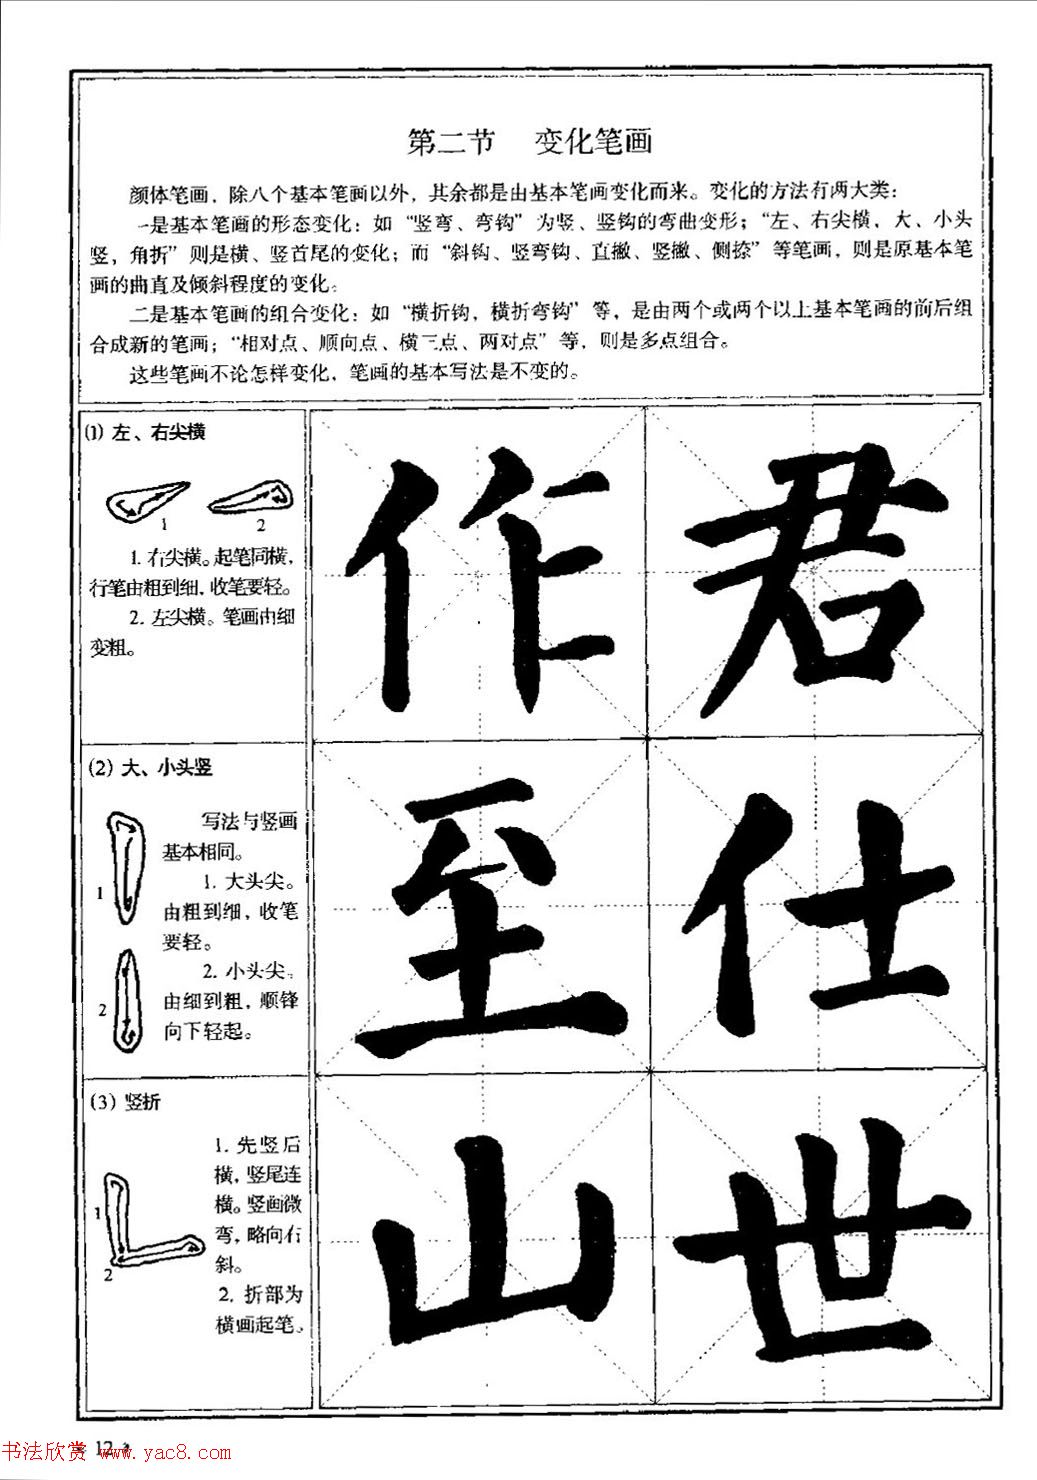 第二节 变化笔画
颜体笔画，除八个基本笔画以外，其余都是由基本笔画变化而来。变化的方法有两大类：
一是基本笔画的形态变化：如“竖弯、弯钩”为竖、竖钩的弯曲变形；“左、右尖横，大、小头
竖，角折”则是横、竖首尾的变化；而“斜钩、竖弯钩、直撇、竖撇、侧捺”等笔画，则是原基本笔
画的曲直及倾斜程度的变化。
二是基本笔画的组合变化：如“横折钩，横折弯钩”等，是由两个或两个以上基本笔画的前后组
合成新的笔画；“相对点、顺向点、横三点、两对点”等，则是多点组合。
这些笔画不论怎样变化，笔画的基本写法是不变的。
(1) 左、右尖横
1
2
1. 右尖横。起笔同横，
行笔由粗到细，收笔要轻。
2. 左尖横。笔画由细
变粗。
作 君
(2) 大、小头竖
写法与竖画
基本相同。
1. 大头尖。
由粗到细，收笔
要轻。
2. 小头尖。
由细到粗，顺锋
向下轻起。
1
2
至 仕
(3) 竖折
1. 先竖后
横，竖尾连
横。竖画微
弯，略向右
斜。
2. 折部为
横画起笔。
1
2
山 世
12
书法欣赏 www.yac8.com